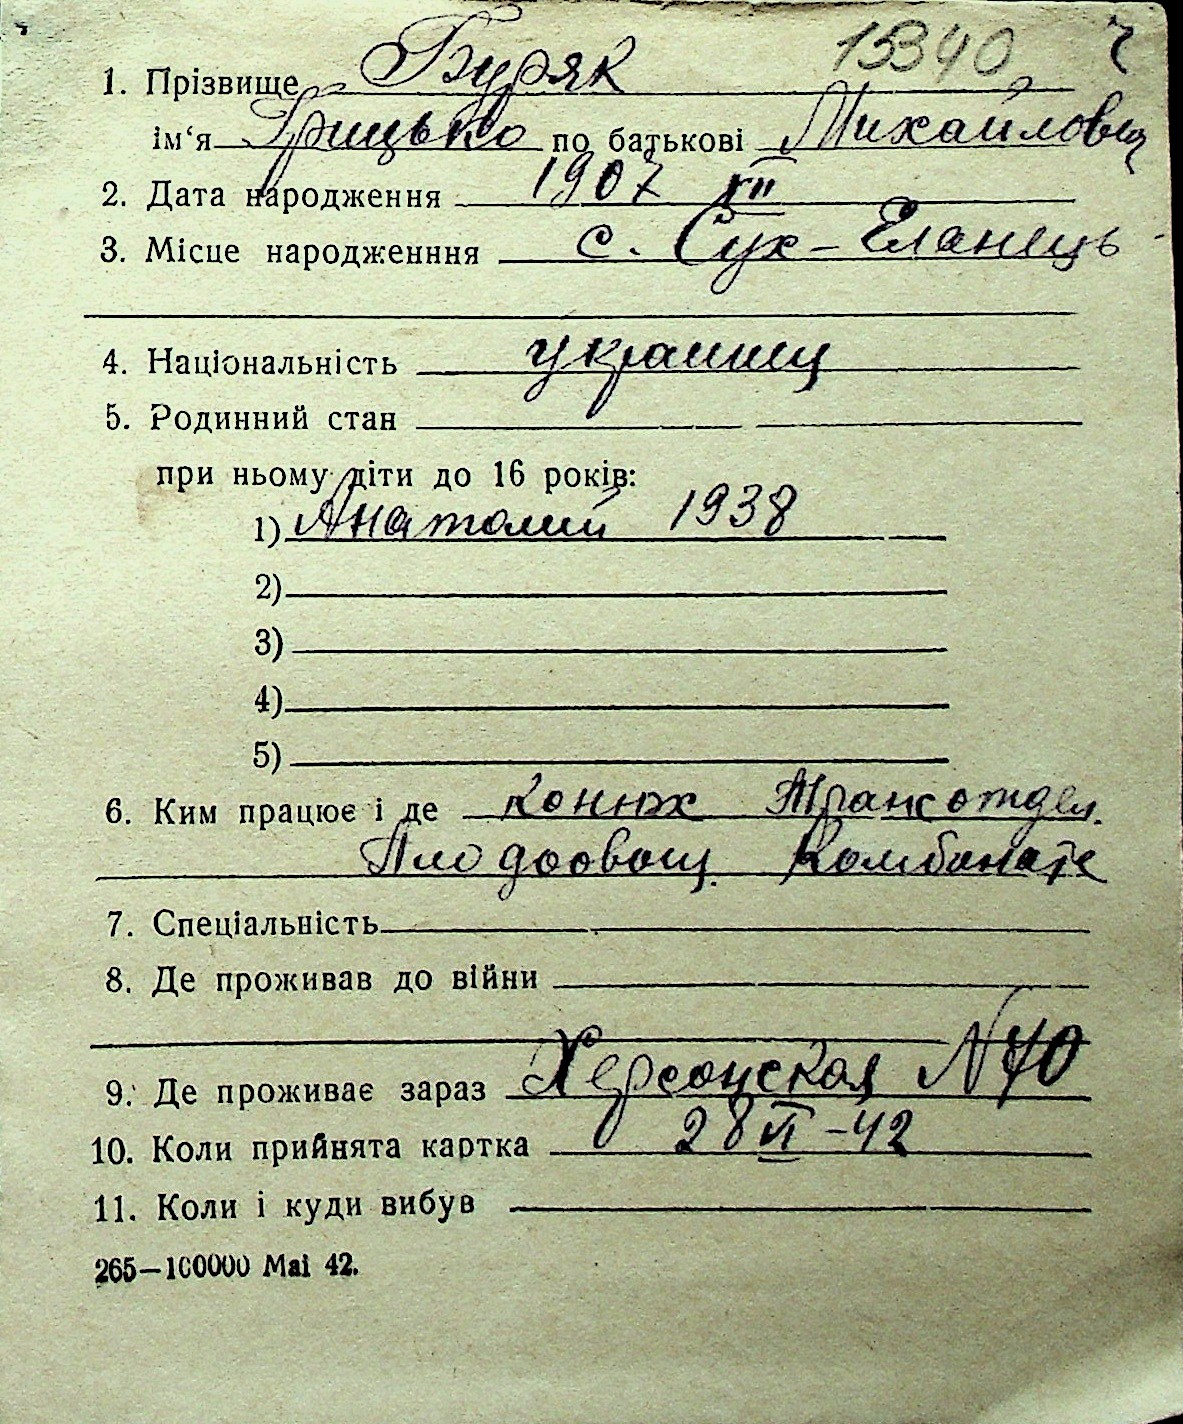 15340 ч
1. Прізвище Буряк
ім‘я Грицько по батькові Михайлович
2. Дата народження 1907 VII
3. Місце народженння с. Сух-Еланець
4. Національність украинец
5. Родинний стан
при ньому діти до 16 років:
1) Анатолий 1938
2)
3)
4)
5)
6. Ким працює і де конюх Трансотдел.
Плодоовощ. Комбинате
7. Спеціальність
8. Де проживав до війни
9. Де проживає зараз Херсонская N 40
10. Коли прийнята картка 28 VI -42
11. Коли і куди вибув
265—100000 Mai 42.